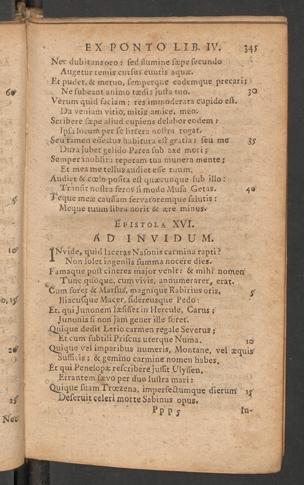 EX PONTO LIB. IV. 345
Nec dubitans oro: sed flumine sæpe secundo
Augetur remis cursus euntis aquæ.
Et pudet, & metuo, semperque eademque precari;
Ne subeant animo tædia justa tuo. 30
Verum quid faciam: res immoderata cupido est.
Da veniam vitio, mitis amice, meo.
Scribere sæpe aliud cupiens delabor eodem:
Ipsa locum per se littera nostra rogat.
Seu tamen effectus habitura est gratia; seu me 35
Dura jubet gelido Parca sub axe mori;
Semper inoblita repetam tua munera mente;
Et mea me tellus audiet esse tuum.
Audiet & cœlo posita est quæcunque sub illo:
Transit nostra feros si modo Musa Getas. 40
Teque meæ causam servatoremque salutis:
Meque tuum libra norit & ære minus.
EPISTOLA XVI.
AD INVIDUM.
INvide, quid laceras Nasonis carmina rapti?
Non solet ingeniis summa nocere dies.
Famaque post cineres major venit: & mihi nomen
Tunc quoque, cum vivis, annumerarer, erat.
Cum foret & Marsus, magnique Rabirius oris, 5
Iliacusque Macer, sidereusque Pedo:
Et, qui Junonem læsisset in Hercule, Carus;
Junonis si non jam gener ille foret.
Quique dedit Latio carmen regale Severus;
Et cum subtili Priscus uterque Numa. 10
Quique vel imparibus numeris, Montane, vel æquis
Sufficis; & gemino carmine nomen habes.
Et qui Penelopæ rescribere jussit Ulyssen,
Errantem sævo per duo lustra mari:
Quique suam Trœzena, imperfectumque dierum 15
Deseruit celeri morte Sabinus opus.
Ppp5 In-